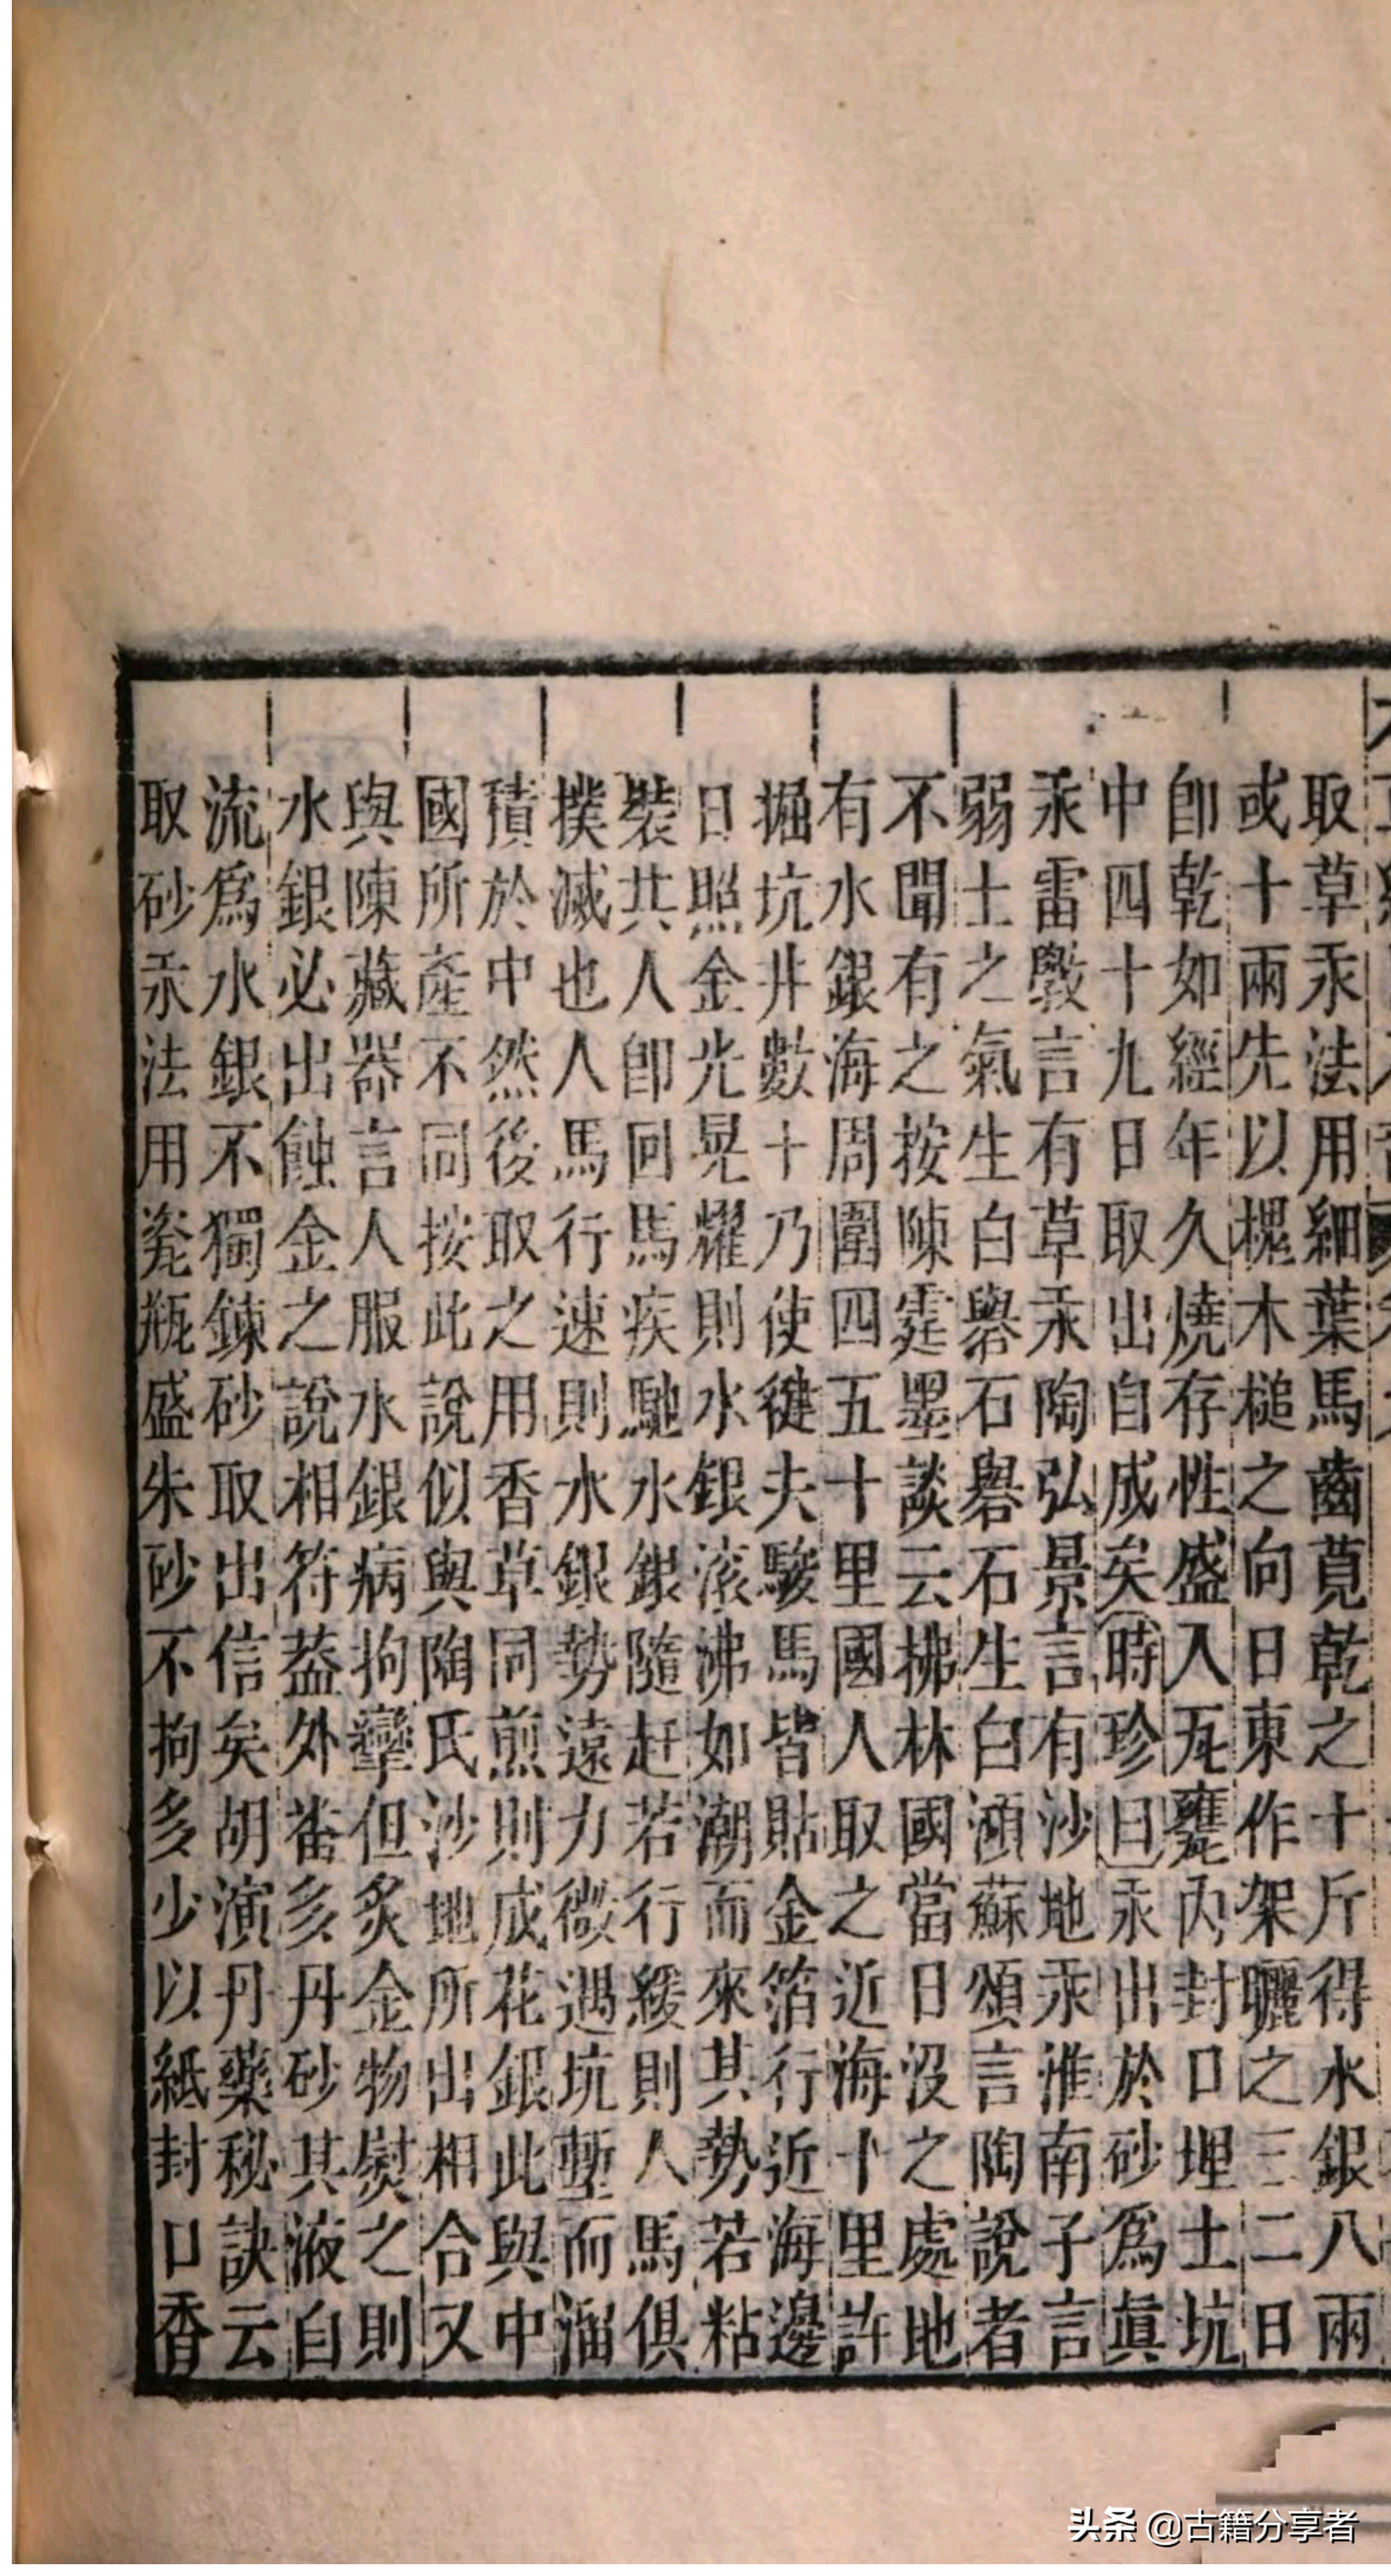 取草汞法用細葉馬齒莧乾之十斤得水銀八兩
或十兩先以槐木槌之向日東作架曬之三二日
卽乾如經年久燒存性盛入瓦甕內封口埋土坑
中四十九日取出自成矣時珍曰汞出於砂爲眞
汞雷斅言有草汞陶弘景言有沙地汞淮南子言
弱土之氣生白礜石礜石生白澒蘇頌言陶說者
不聞有之按陳霆墨談云拂林國當日沒之處地
有水銀海周圍四五十里國人取之近海十里許
掘坑井數十乃使健夫駿馬皆貼金箔行近海邊
日照金光晃耀則水銀滚沸如潮而來其勢若粘
裝其人卽回馬疾馳水銀隨赶若行緩則人馬俱
撲滅也人馬行速則水銀勢遠力微遇坑塹而溜
積於中然後取之用香草同煎則成花銀此與中
國所產不同按此說似與陶氏沙地所出相合又
與陳藏器言人服水銀病拘攣但炙金物熨之則
水銀必出蝕金之說相符葢外番多丹砂其液自
流爲水銀不獨鍊砂取出信矣胡演丹藥秘訣云
取砂汞法用瓷瓶盛朱砂不拘多少以紙封口香
头条 @古籍分享者